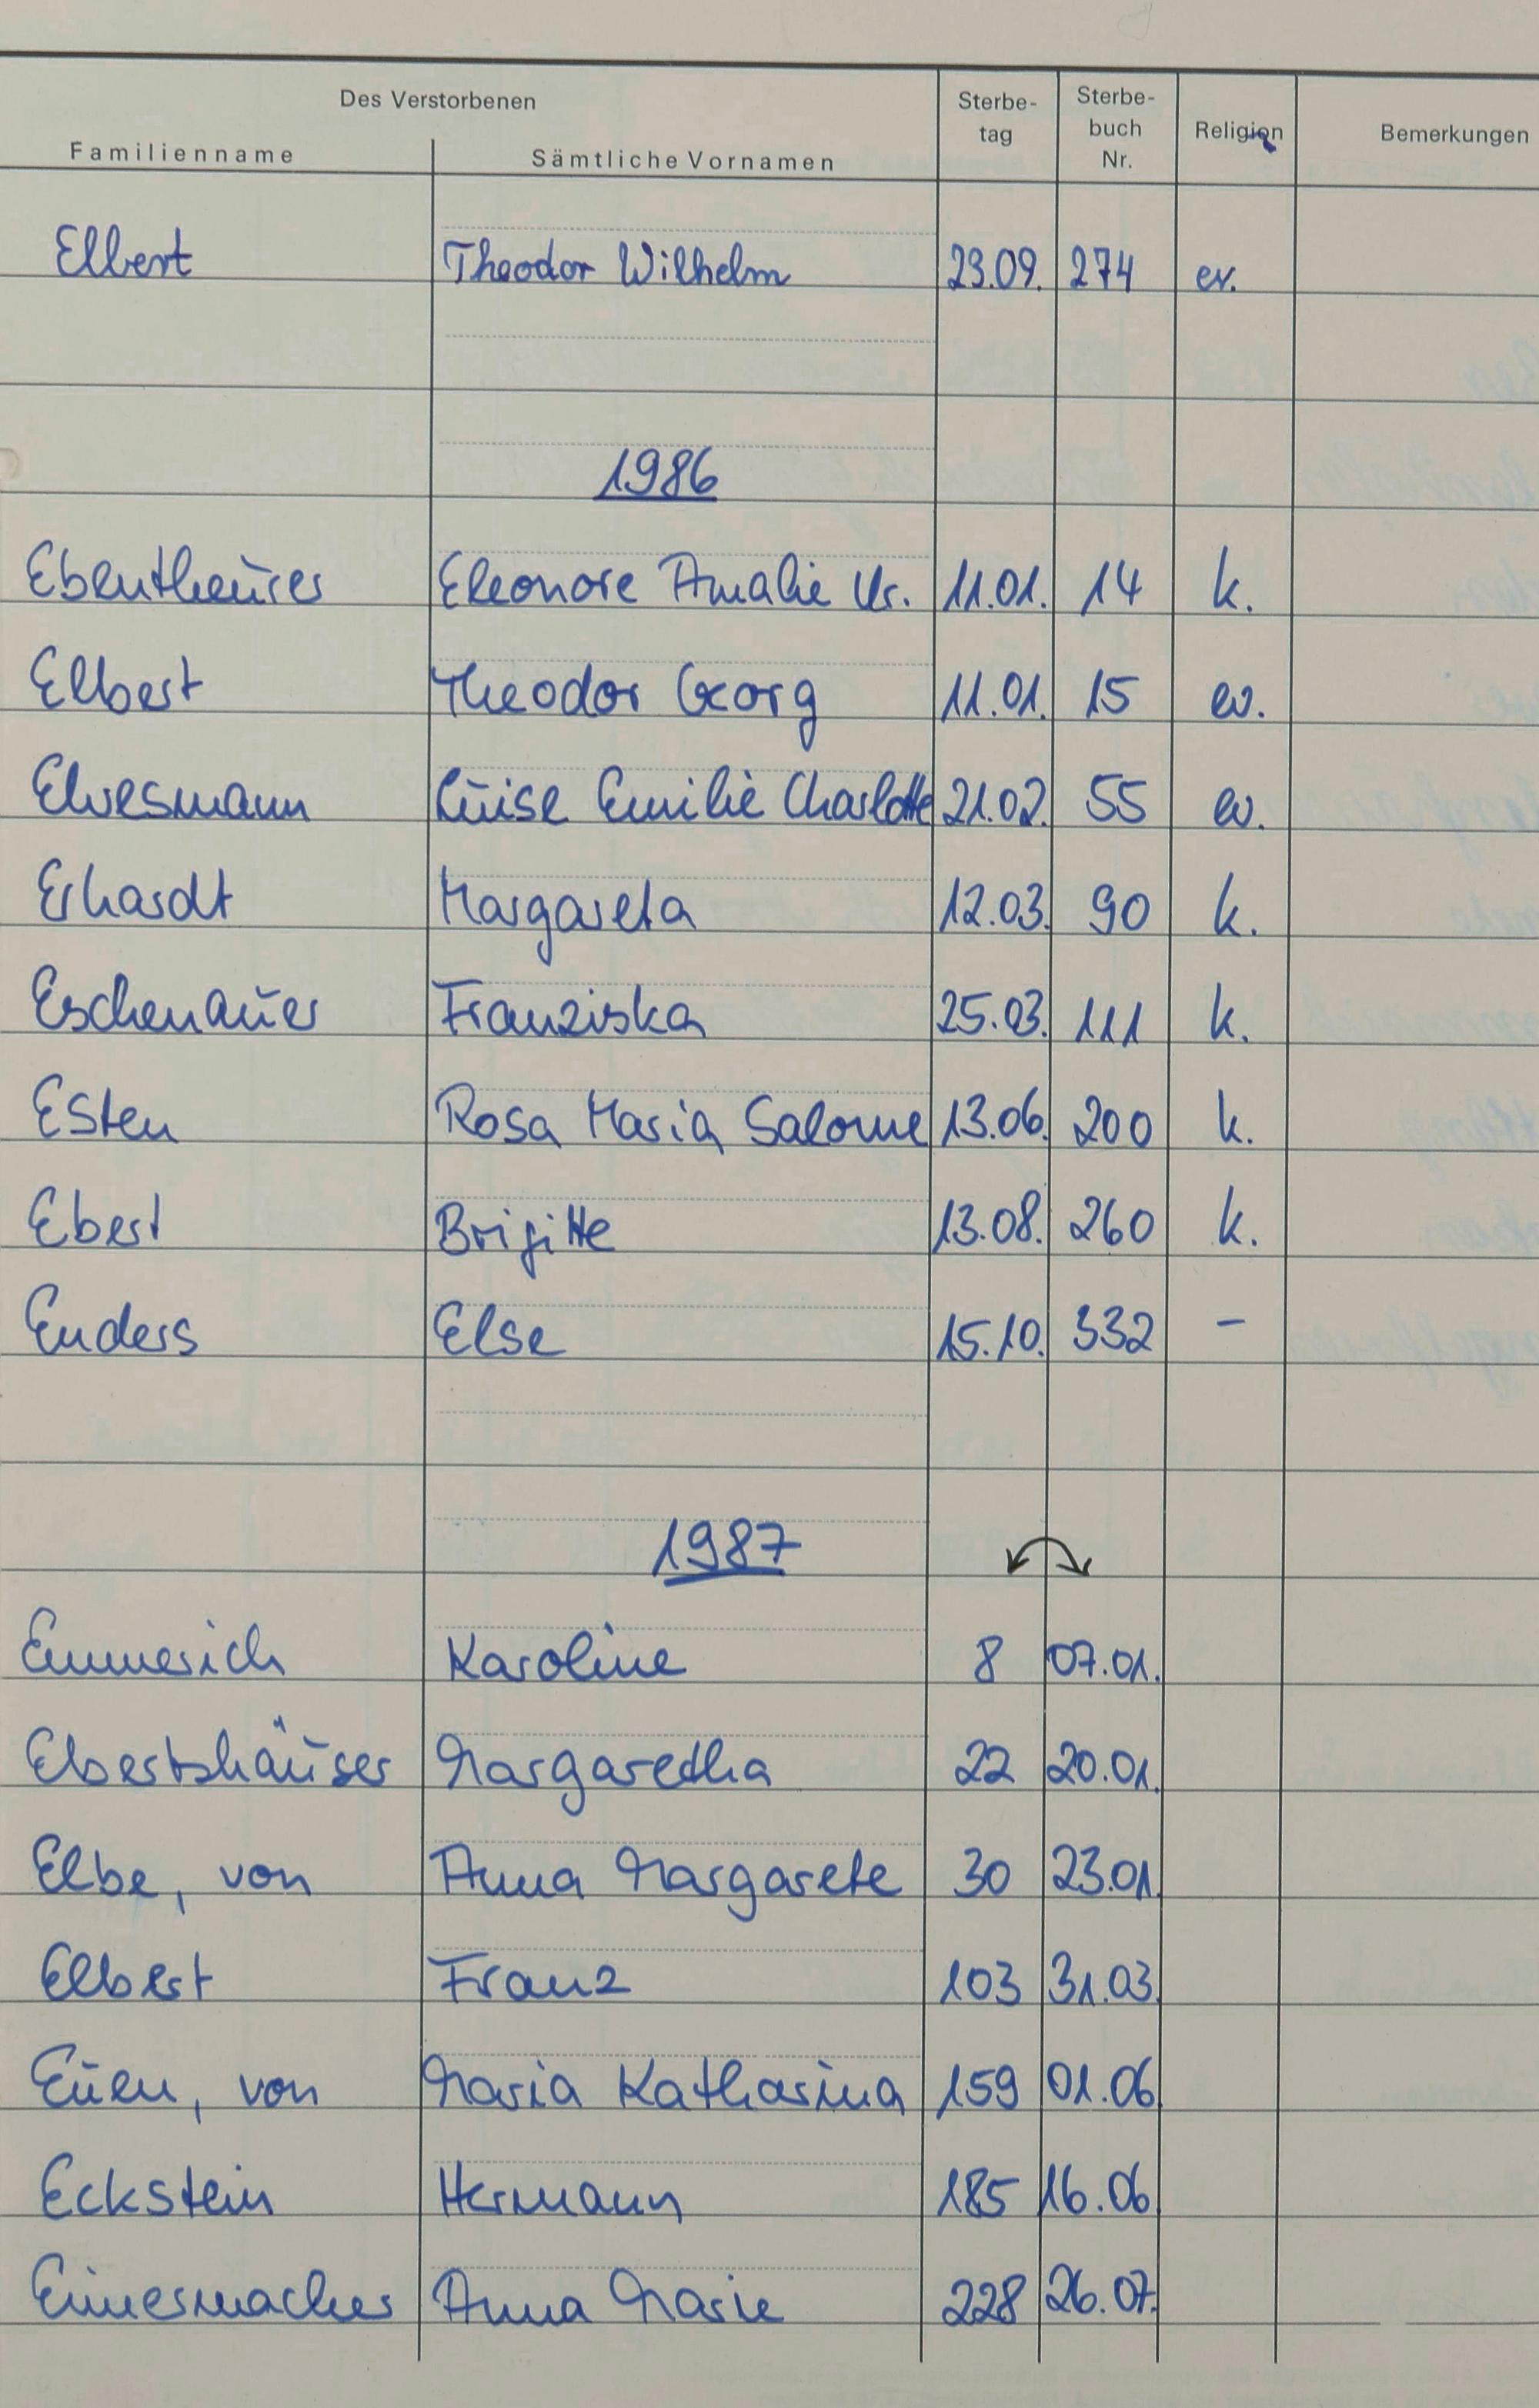 Des Verstorbenen
Familienname Sämtliche Vornamen Sterbe- tag Sterbe- buch Nr. Religion Bemerkungen
Elbert Theodor Wilhelm 23.09. 274 ev.
1986
Ebentheurer Eleonore Amalie Ur. 11.01. 14 k.
Elbert Theodor Georg 11.01. 15 ev.
Elvesmann Luise Emilie Charlotte 21.02. 55 ev.
Erhardt Margareta 12.03. 90 k.
Eschenauer Franziska 25.03. 111 k.
Esten Rosa Maria Salome 13.06. 200 k.
Ebert Brigitte 13.08. 260 k.
Enders Else 15.10. 332 –
1987
Emmerich Karoline 8 07.01.
Ebertshäuser Margaretha 22 20.01.
Elbe, von Anna Margarete 30 23.01.
Elbert Franz 103 31.03.
Euen, von Maria Katharina 159 01.06
Eckstein Hermann 185 16.06
Eimermacher Anna Marie 228 26.07.